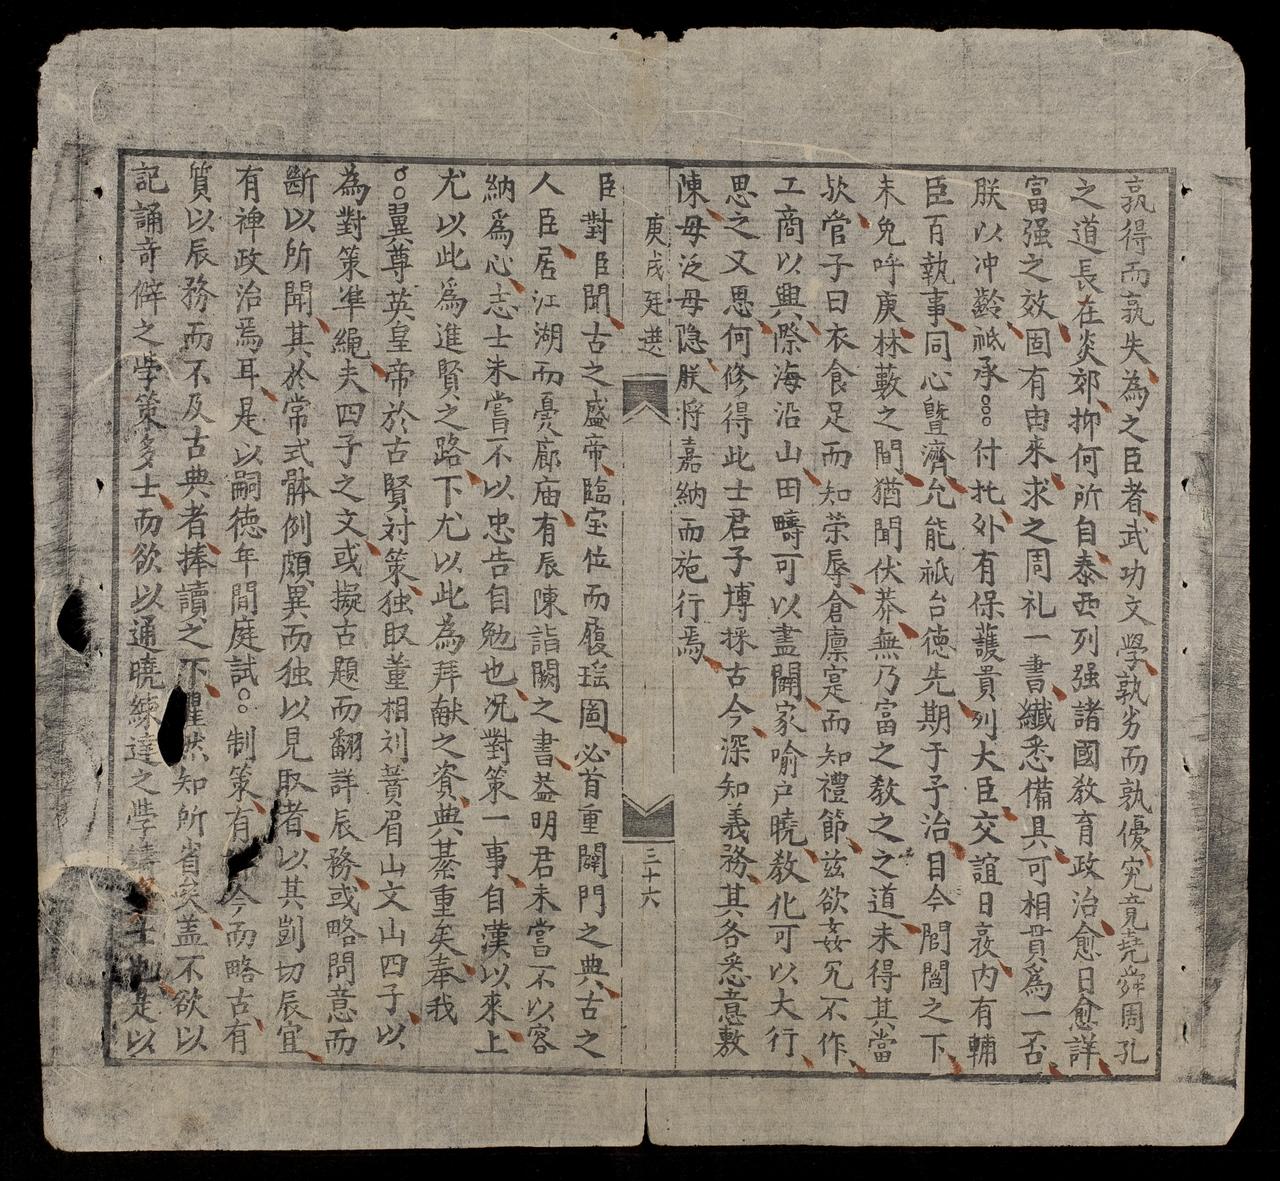 孰得而孰失為之臣者武功文學孰劣而孰優究竟堯舜周孔
之道長在炎郊抑何所自泰西列强諸國教育政治愈日愈詳
富强之效固有由來求之周礼一書纖悉備具可相貫為一否
朕以冲齡祗承。。。付托外有保護貴列大臣交誼日裒内有輔
臣百執事同心曁濟允能祗台德先期于予治目今閭閻之下
未免呼庚林藪之間猶聞伏莽無乃富之教之之道未得其當
欤管子曰衣食足而知荣辱倉廩寔而知禮節兹欲姦宄不作
工商以興際海沿山田疇可以盡闢家喻戸曉教化可以大行
思之又思何修得此士君子博採古今深知義務其各悉意敷
陳毋泛毋隐朕将嘉納而施行焉
庚戌廷選
三十六
臣對臣聞古之盛帝臨宝位而履瑶圖必首重闢門之典古之
人臣居江湖而憂廊庙有辰陳詣闕之書益明君未嘗不以容
納爲心志士未嘗不以忠告自勉也况對策一事自漢以來上
尤以此為進賢之路下尤以此為拜献之資典綦重矣奉我
。。翼尊英皇帝於古賢対策独取董相刘蕡眉山文山四子以
為對策準繩夫四子之文或擬古題而翻詳辰務或略問意而
斷以所聞其於常式骵例頗異而独以見取者以其剴切辰宜
有裨政治焉耳是以嗣徳年間庭試。。制策有今而略古有
質以辰務而不及古典者捧讀之下瞿然知所省矣盖不欲以
記誦竒僻之学策多士而欲以通曉練達之学士也是以